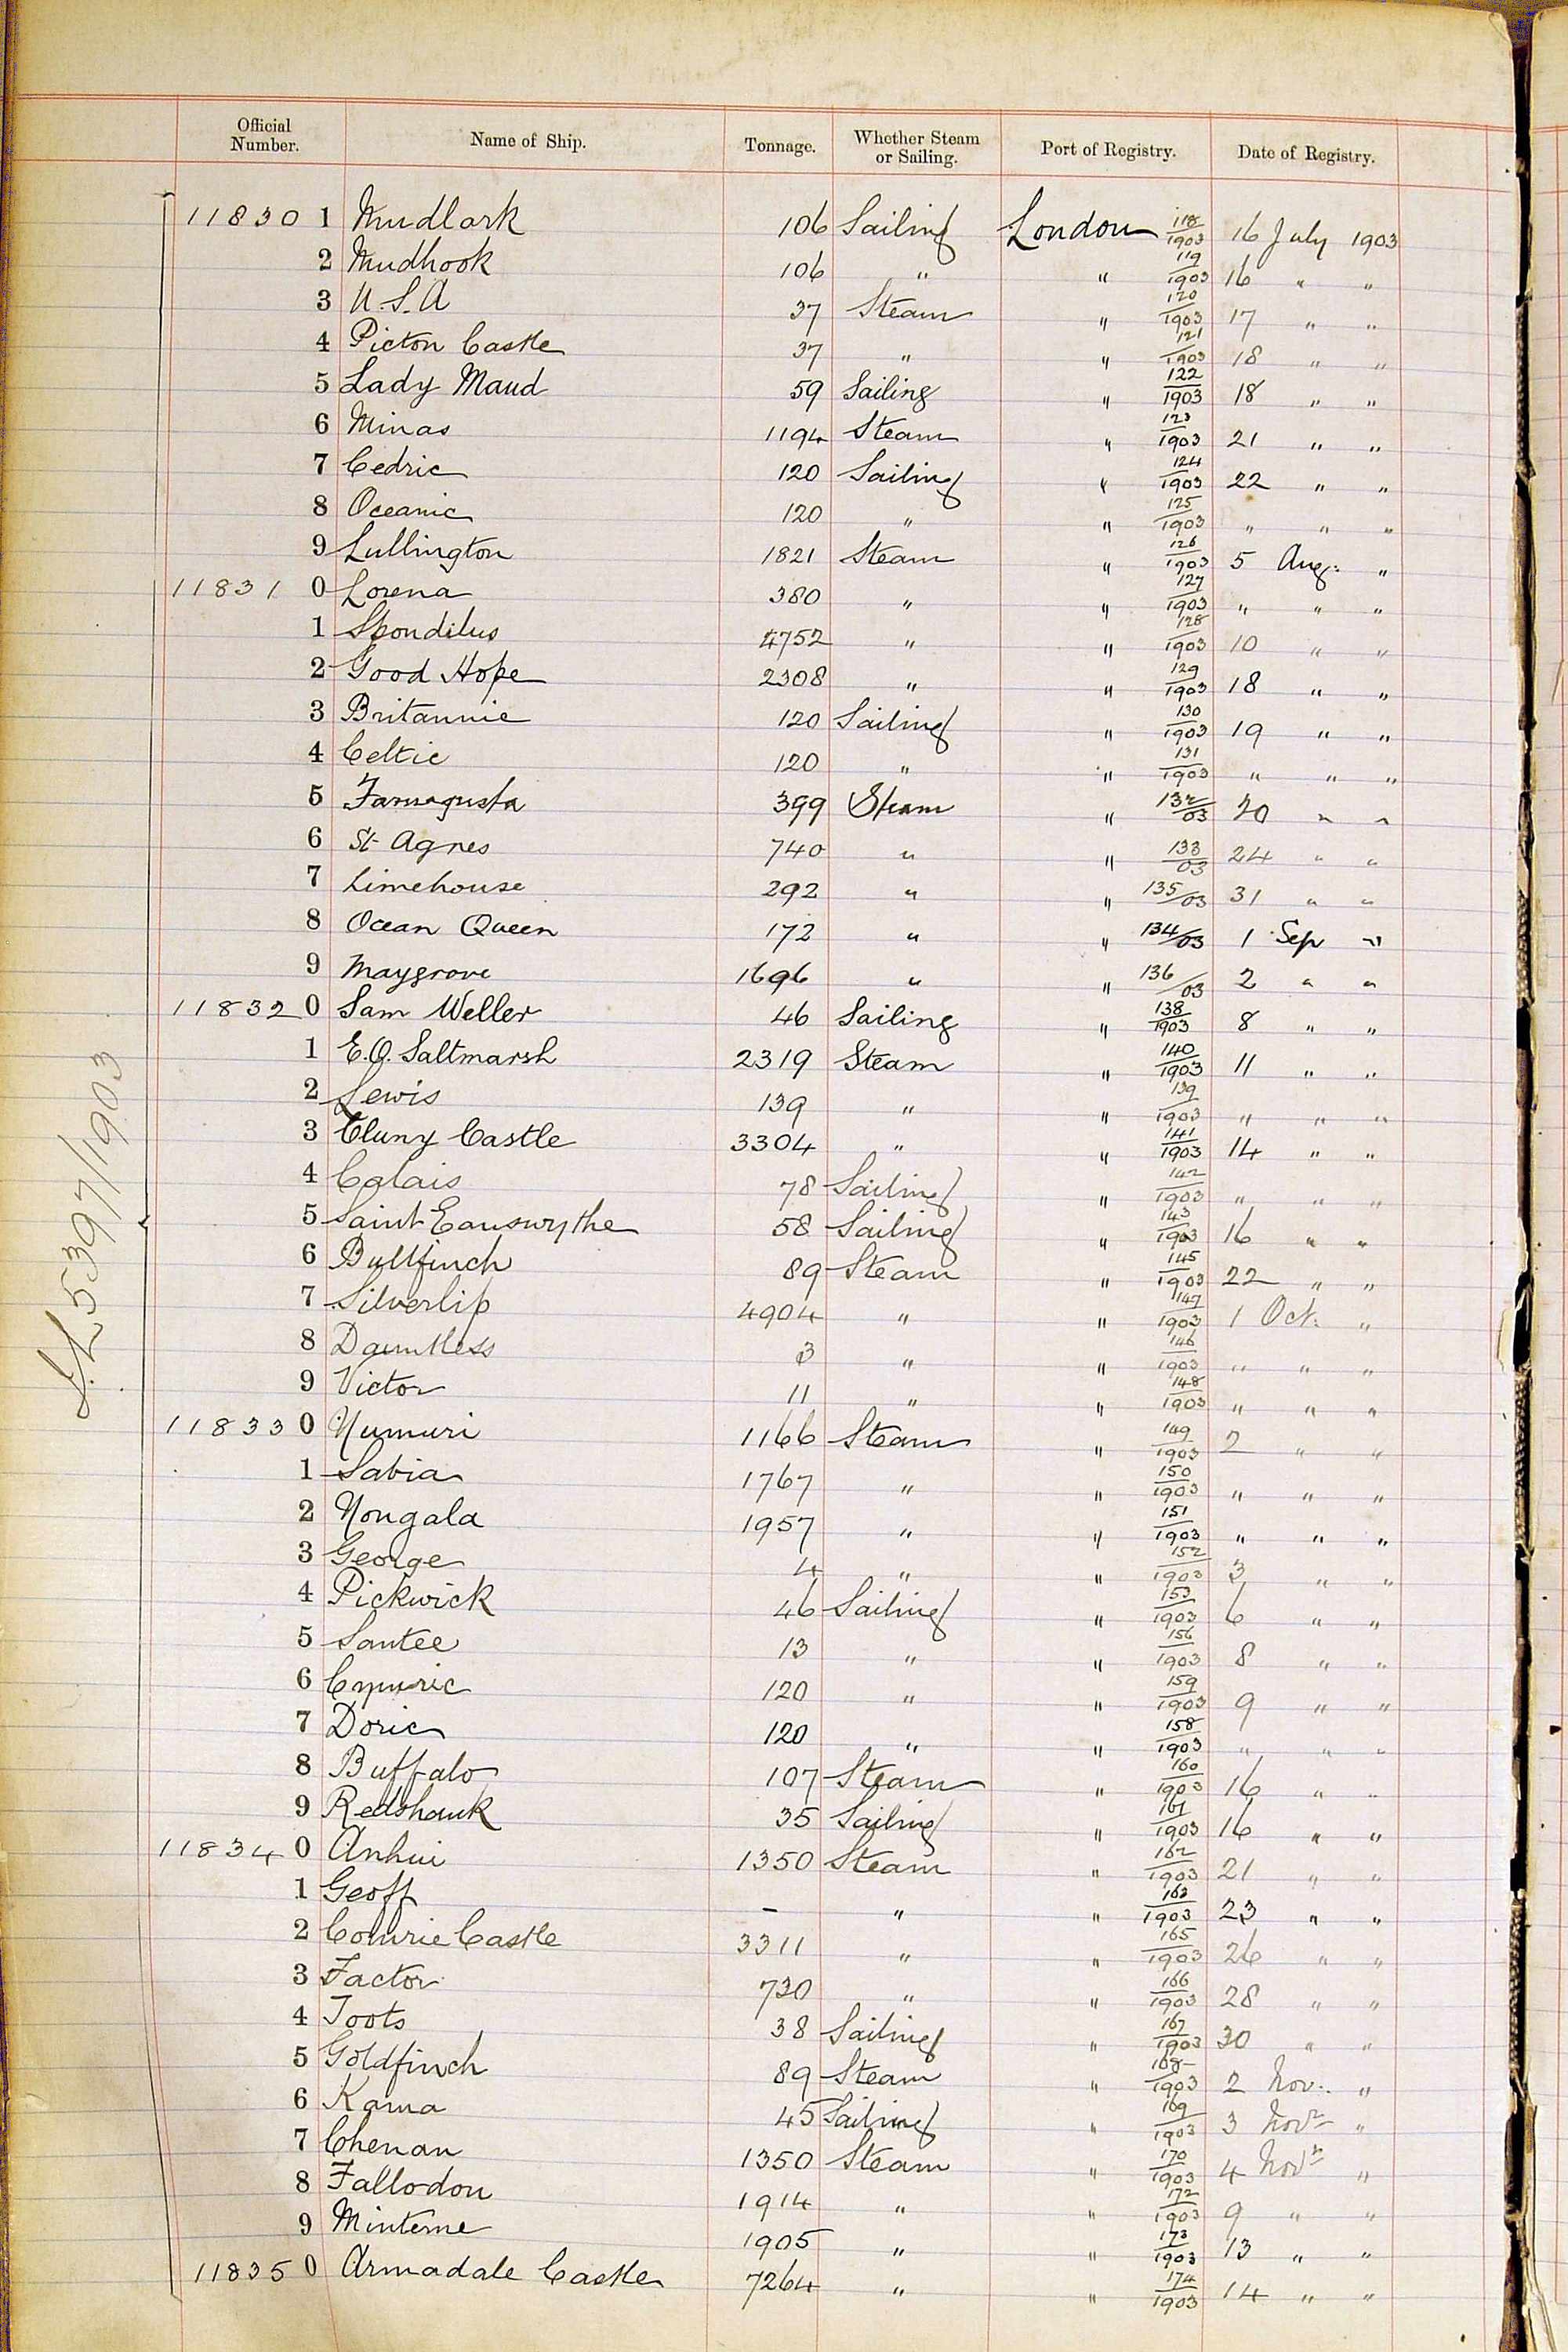 Official Number. Name of Ship. Tonnage. Whether Steam or Sailing. Port of Registry. Date of Registry.
11830 1 Mudlark 106 Sailing London 118/1903 16 July 1903
2 Mudhook 106 " " 119/1903 16 " "
3 U.S.A 37 Steam " 120/1903 17 " "
4 Picton Castle 37 " " 121/1903 18 " "
5 Lady Maud 59 Sailing " 122/1903 18 " "
6 Minas 1194 Steam " 123/1903 21 " "
7 Cedric 120 Sailing " 124/1903 22 " "
8 Oceanic 120 " " 125/1903 " " "
9 Lullington 1821 Steam " 126/1903 5 Aug: "
11831 0 Lorena 380 " " 127/1903 " " "
1 Spondilus 4752 " " 128/1903 10 " "
2 Good Hope 2308 " " 129/1903 18 " "
3 Britannic 120 Sailing " 130/1903 19 " "
4 Celtic 120 " " 131/1903 " " "
5 Famagusta 399 Steam " 132/03 20 " "
6 St Agnes 740 " " 133/03 24 " "
7 Limehouse 292 " " 135/03 31 " "
8 Ocean Queen 172 " " 134/03 1 Sep "
9 Maygrove 1696 " " 136/03 2 " "
11832 0 Sam Weller 46 Sailing " 138/1903 8 " "
1 E.O. Saltmarsh 2319 Steam " 140/1903 11 " "
2 Lewis 139 " " 139/1903 " " "
3 Cluny Castle 3304 " " 141/1903 14 " "
4 Calais 78 Sailing " 142/1903 " " "
5 Saint Eanswythe 58 Sailing " 143/1903 16 " "
6 Bullfinch 89 Steam " 145/1903 22 " "
7 Silverlip 4904 " " 147/1903 1 Oct. "
8 Dauntless 3 " " 146/1903 " " "
9 Victor 11 " " 148/1903 " " "
11833 0 Yumuri 1166 Steam " 149/1903 2 " "
1 Sabia 1767 " " 150/1903 " " "
2 Yongala 1957 " " 151/1903 " " "
3 George 4 " " 152/1903 3 " "
4 Pickwick 46 Sailing " 153/1903 6 " "
5 Santee 13 " " 156/1903 8 " "
6 Cymric 120 " " 159/1903 9 " "
7 Doric 120 " " 158/1903 " " "
8 Buffalo 107 Steam " 160/1903 16 " "
9 Redshank 35 Sailing " 161/1903 16 " "
11834 0 Anhui 1350 Steam " 162/1903 21 " "
1 Geoff - " " 163/1903 23 " "
2 Comrie Castle 3311 " " 165/1903 26 " "
3 Factor 730 " " 166/1903 28 " "
4 Toots 38 Sailing " 167/1903 30 " "
5 Goldfinch 89 Steam " 168/1903 2 Nov. "
6 Kama 45 Sailing " 169/1903 3 Novr "
7 Chenan 1350 Steam " 170/1903 4 Novr "
8 Fallodon 1914 " " 172/1903 9 " "
9 Minterne 1905 " " 173/1903 13 " "
11835 0 Armadale Castle 7264 " " 174/1903 14 " "
5397/1903